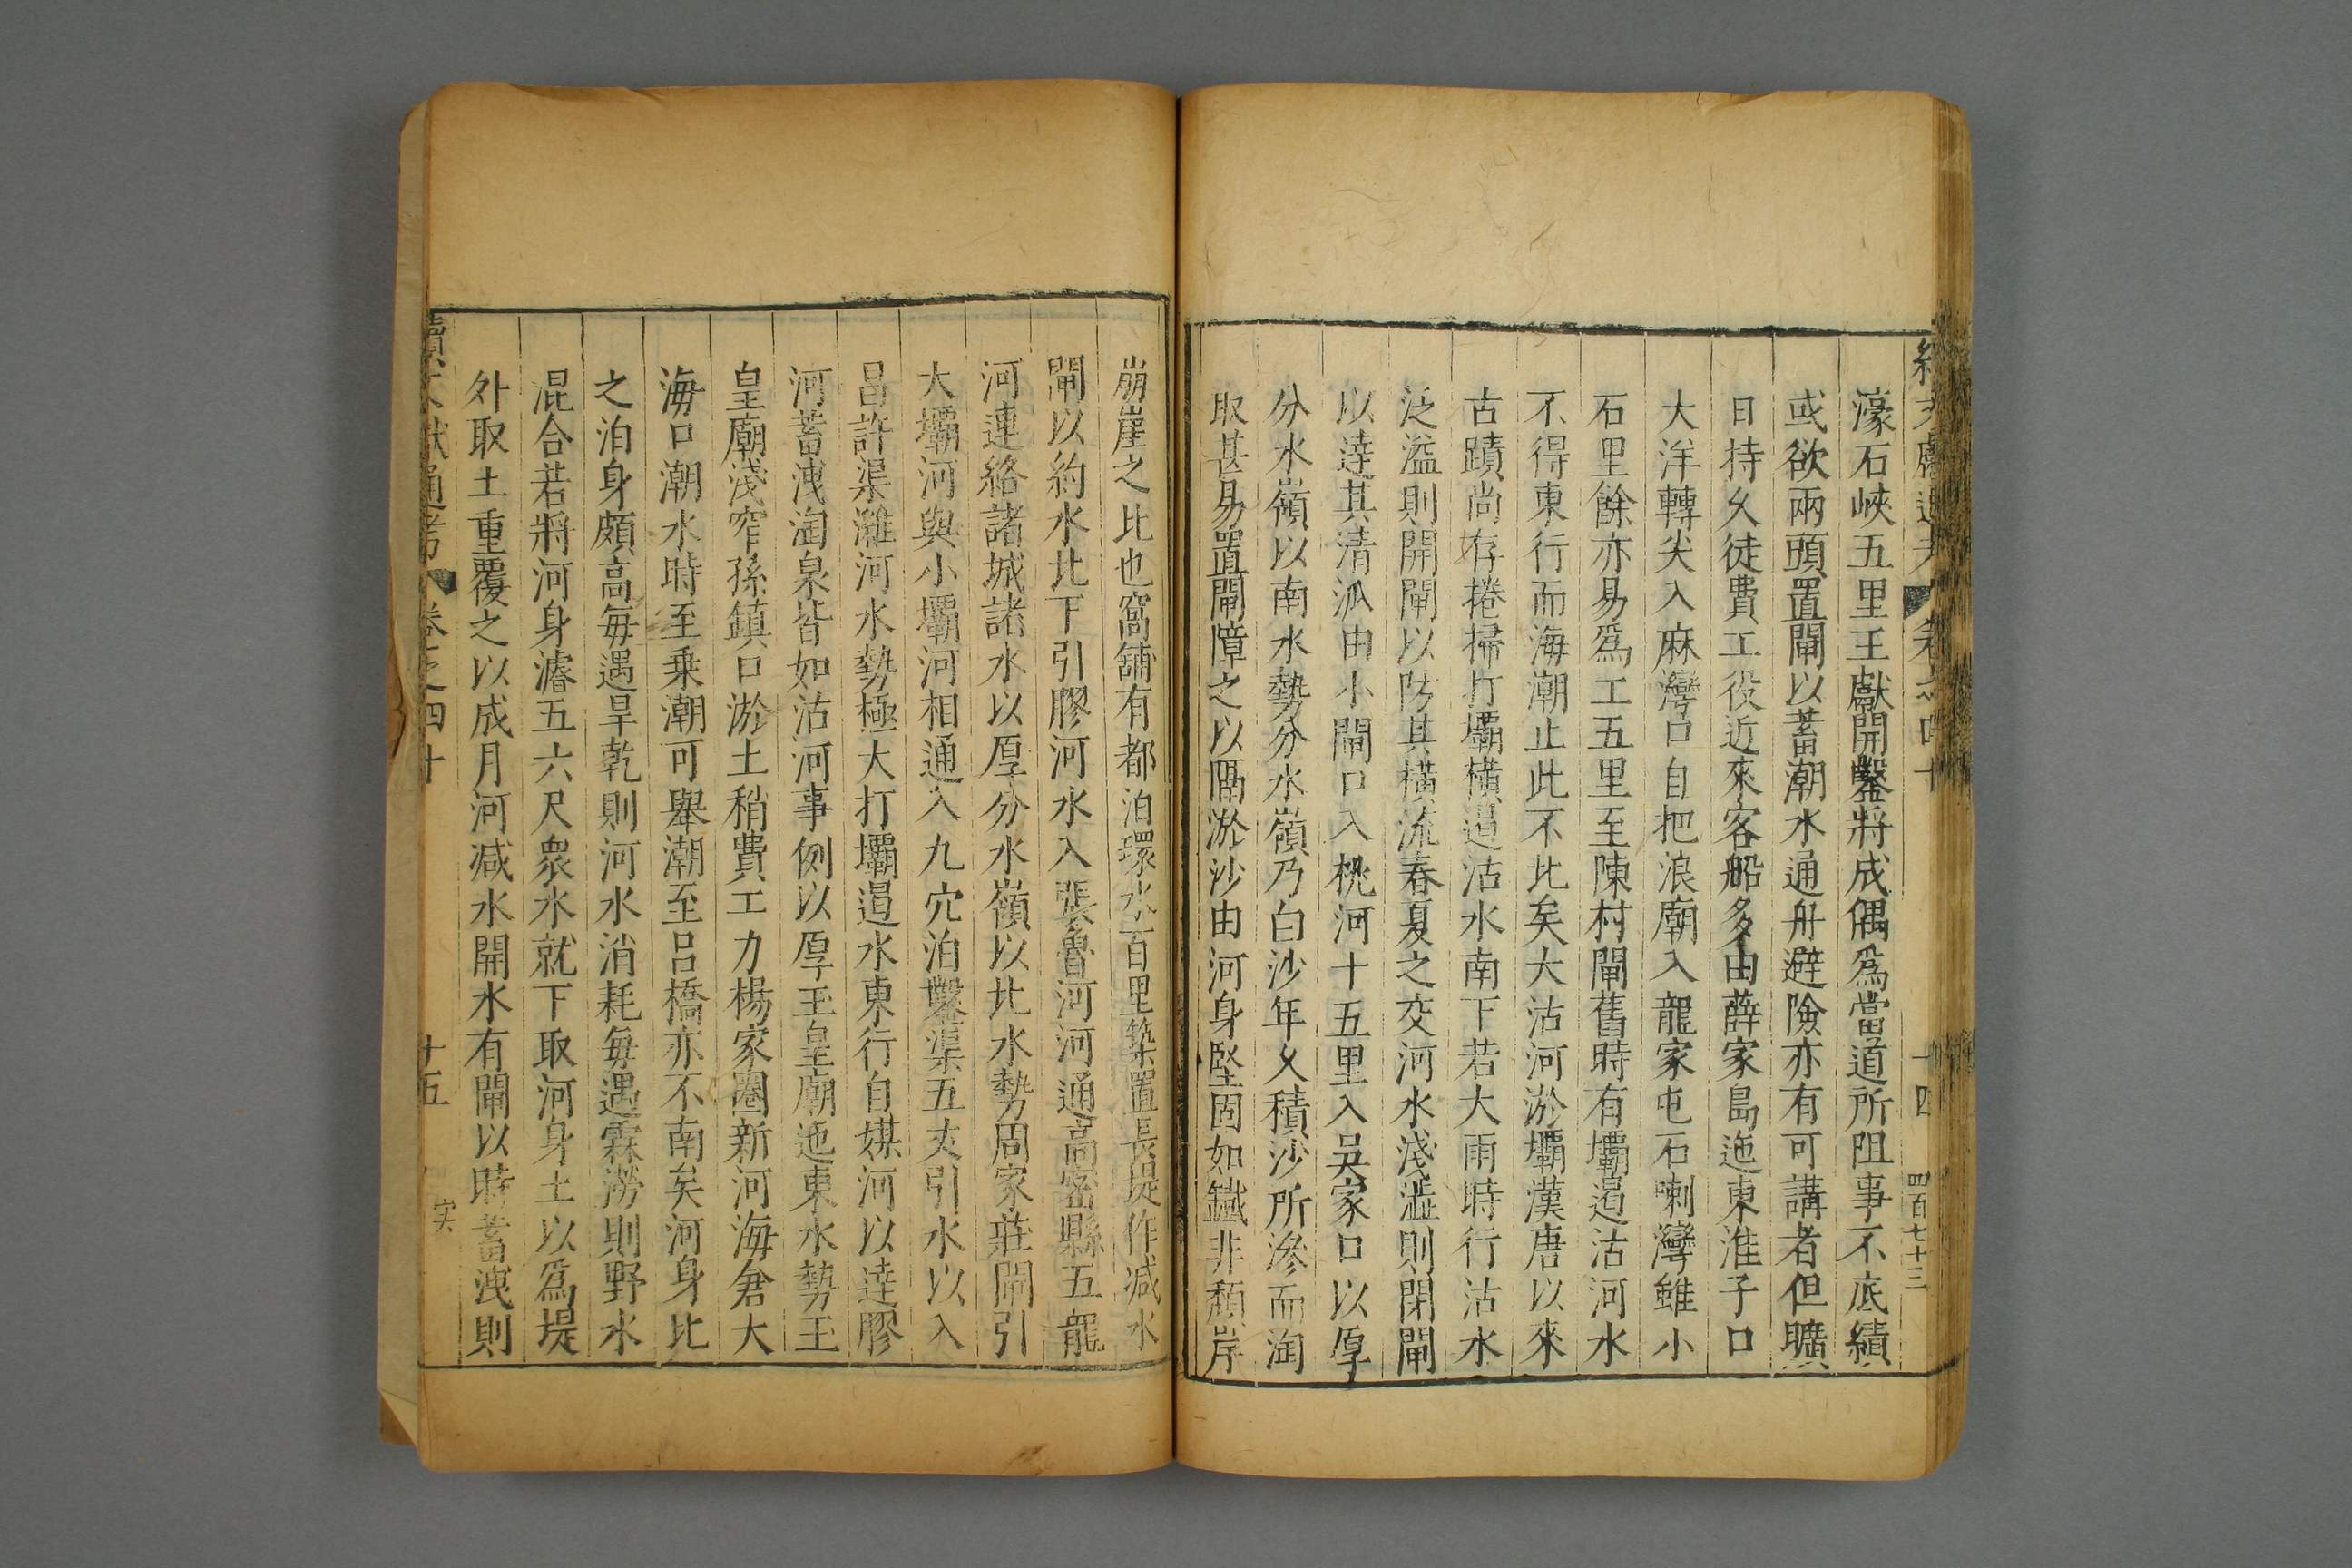 濠石峽五里王獻開鑿將成偶爲當道所阻事不底績
或欲兩頭置閘以蓄潮水通舟避險亦有可講者但曠
日持久徒費工役近來客船多由薛家島迤東淮子口
大洋轉尖入麻灣口自把浪廟入龍家屯石喇灣雖小
石里餘亦易爲工五里至陳村閘舊時有壩遏沽河水
不得東行而海潮止此不比矣大沽河淤壩漢唐以來
古蹟尚存捲掃打壩橫遏沽水南下若大雨時行沽水
泛溢則開閘以防其橫流春夏之交河水淺澁則閉閘
以達其清泒由小閘口入桃河十五里入吳家口以厚
分水嶺以南水勢分水嶺乃白沙年久積沙所滲而淘
取甚易置閘障之以隔淤沙由河身堅固如鐵非頹岸
續文獻通考 卷之四十 十四 四百七十三
崩崖之比也窩鋪有都泊環水百里築置長堤作减水
閘以約水北下引膠河水入張魯河河通高密縣五龍
河連絡諸城諸水以厚分水嶺以北水勢周家莊閘引
大壩河與小壩河相通入九穴泊鑿渠五丈引水以入
呂許渠濰河水勢極大打壩遏水東行自媒河以達膠
河蓄洩淘泉皆如沽河事例以厚玉皇廟迤東水勢玉
皇廟淺窄孫鎮口淤土稍費工力楊家圈新河海倉大
海口潮水時至乗潮可舉潮至呂橋亦不南矣河身比
之泊身頗高每遇旱乾則河水消耗每遇霖澇則野水
混合若將河身濬五六尺衆水就下取河身土以爲堤
外取土重覆之以成月河减水開水有閘以時蓄洩則
續文獻通考 卷之四十 十五